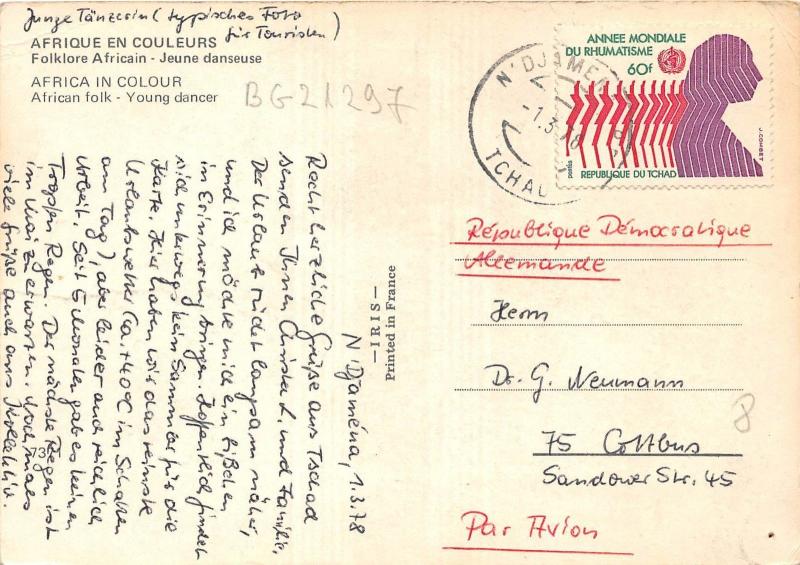 Junge Tänzerin (typisches Foto
für Touristen)
AFRIQUE EN COULEURS
Folklore Africain - Jeune danseuse
AFRICA IN COLOUR
African folk - Young dancer
BG21297
N'Djaména, 1.3.78
Recht herzliche Grüße aus Tschad
senden Ihnen Christa L. und Familie.
Der Urlaub rückt langsam näher,
und ich möchte mich ein bißchen
in Erinnerung bringen. Hoffentlich findet
sich unterwegs kein Sammler für die
Karte. Hier haben wir das reinste
Urlaubswetter (ca. +40°C im Schatten
am Tag), aber leider auch reichlich
Arbeit. Seit 5 Monaten gab es keinen
Tropfen Regen. Der nächste Regen ist
im Mai zu erwarten. Nochmals
viele Grüße auch ans Kollektiv.
—IRIS—
Printed in France
N'DJAMENA
-1.3
TCHAD
ANNEE MONDIALE
DU RHUMATISME
60f
postes
REPUBLIQUE DU TCHAD
J. COMBET
République Démocratique
Allemande
Herrn
Dr. G. Neumann
75 Cottbus
Sandower Str. 45
Par Avion
8